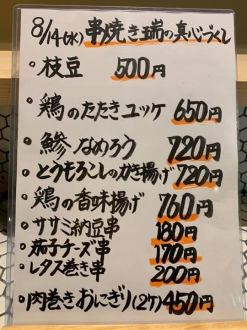 8/14(水) 串焼き瑞の真心づくし
・枝豆 500円
・鶏のたたきユッケ 650円
・鯵なめろう 720円
・とうもろこしのかき揚げ 720円
・鶏の香味揚げ 760円
・ササミ納豆串 180円
・茄子チーズ串 170円
・レタス巻き串 200円
・肉巻きおにぎり(2ケ) 450円